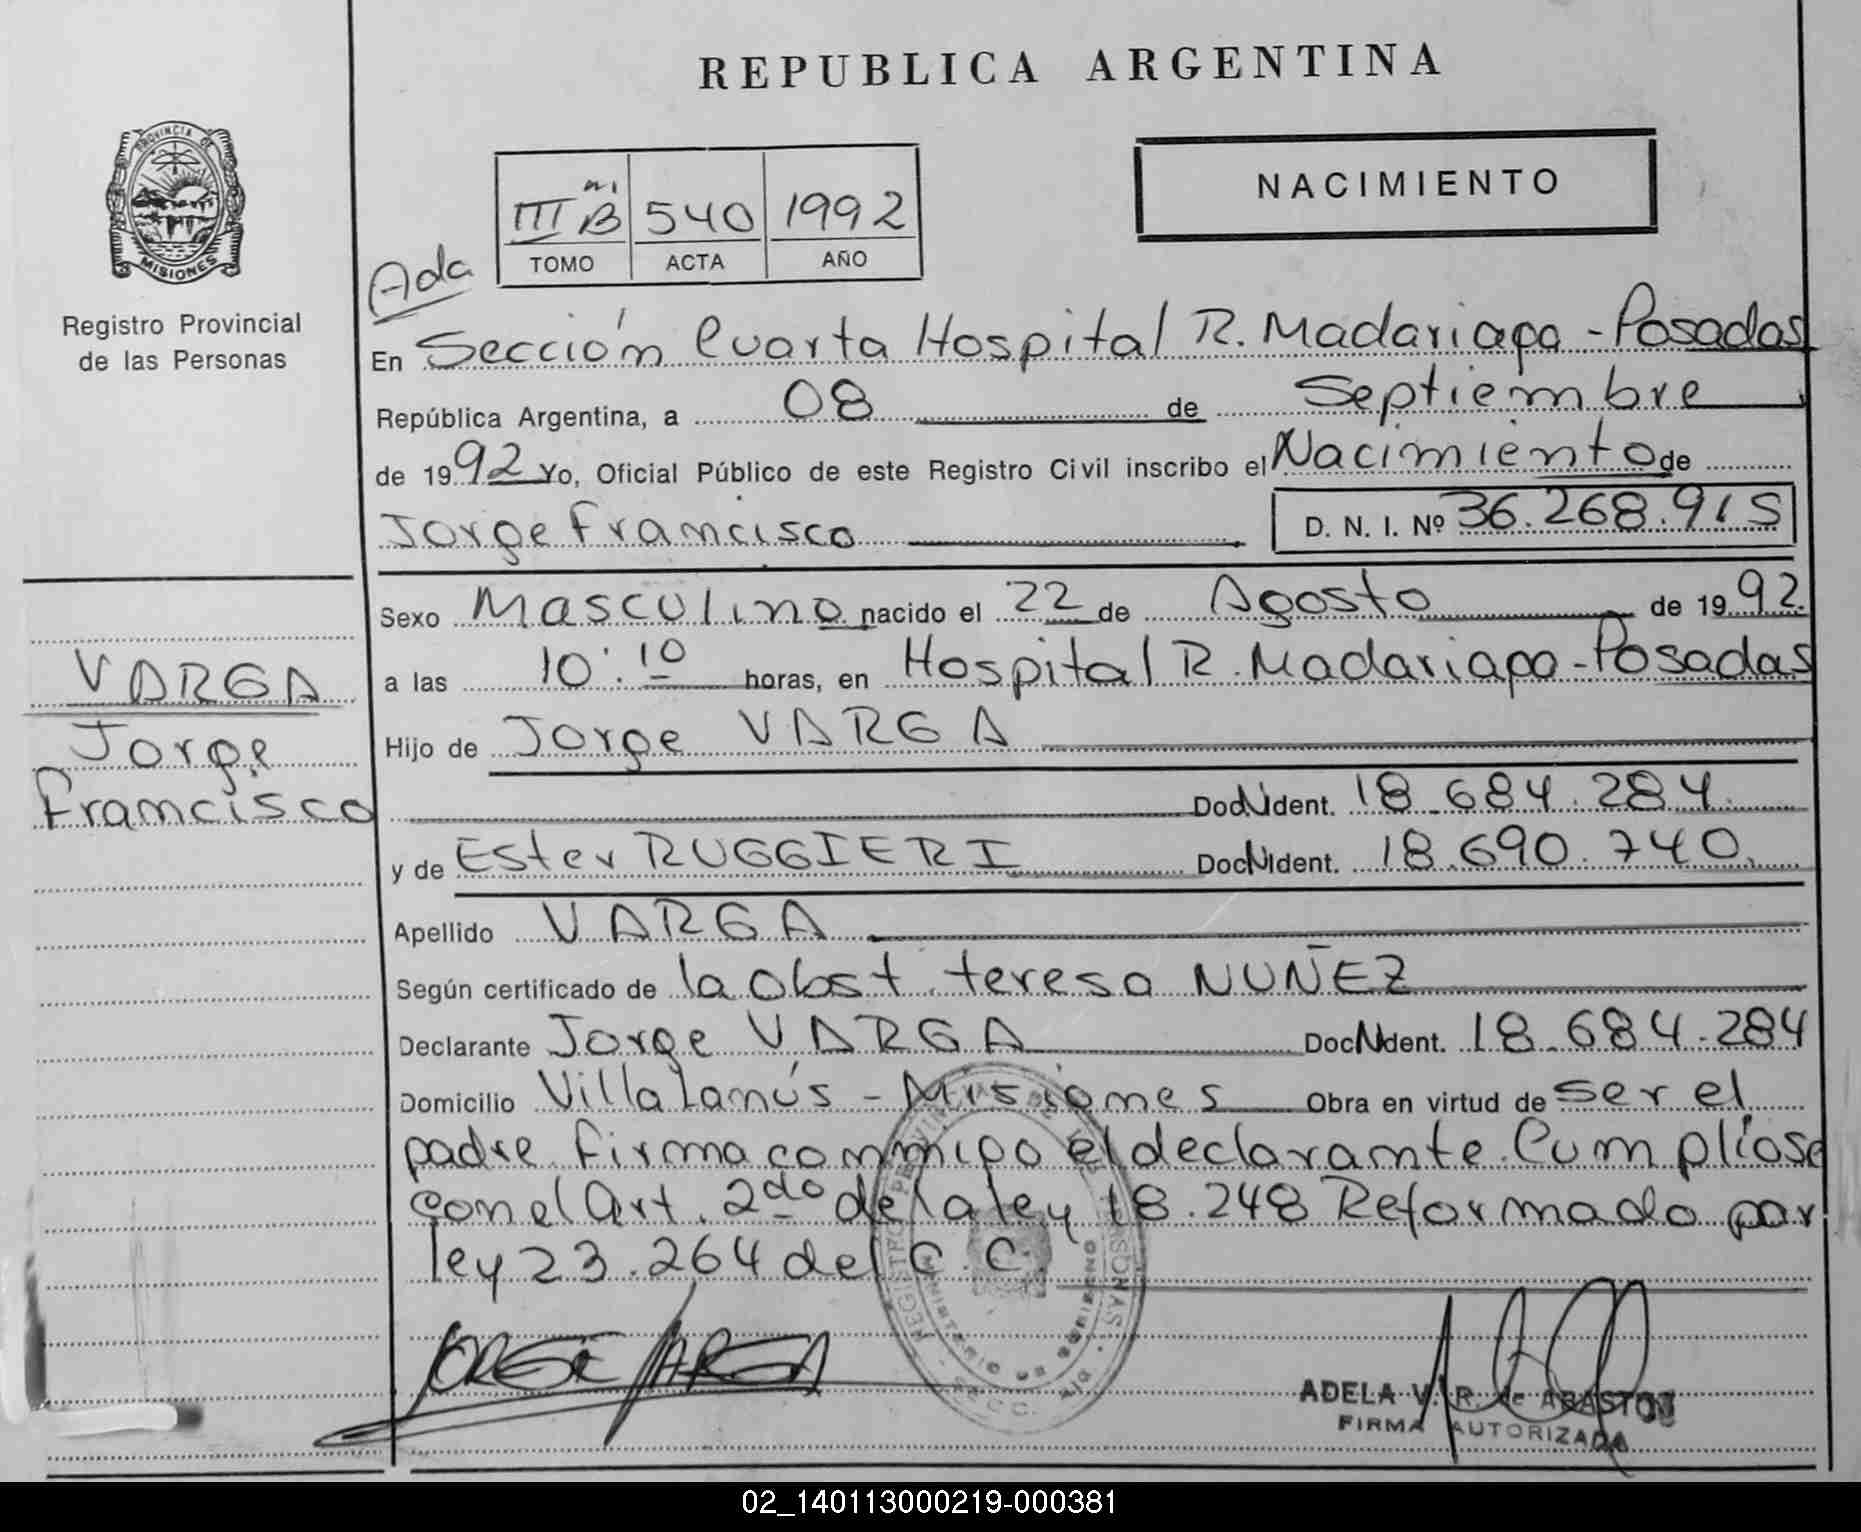 REPUBLICA ARGENTINA
PROVINCIA DE
MISIONES
Registro Provincial
de las Personas
NACIMIENTO
III B 540 1992
TOMO ACTA AÑO
Ada
En Sección Cuarta Hospital R. Madariaga - Posadas
República Argentina, a 08 de Septiembre
de 1992 Yo, Oficial Público de este Registro Civil inscribo el Nacimiento de
Jorge Francisco D. N. I. Nº 36.268.915
Sexo Masculino nacido el 22 de Agosto de 1992.
a las 10:10 horas, en Hospital R. Madariaga - Posadas
VARGA
Jorge
Francisco
Hijo de Jorge VARGA
Doc. N Ident. 18.684.284.
y de Ester RUGGIERI Doc. N Ident. 18.690.740.
Apellido VARGA
Según certificado de la Obst. teresa NUÑEZ
Declarante Jorge VARGA Doc. N Ident. 18.684.284
Domicilio Villa Lanús - Misiones Obra en virtud de ser el
padre. Firma conmigo el declarante. Cumpliose
con el Art. 2do de la ley 18.248 Reformado por
ley 23.264 del C.C.
JORGE VARGA
ADELA V. R. de ABASTO
FIRMA AUTORIZADA
02_140113000219-000381